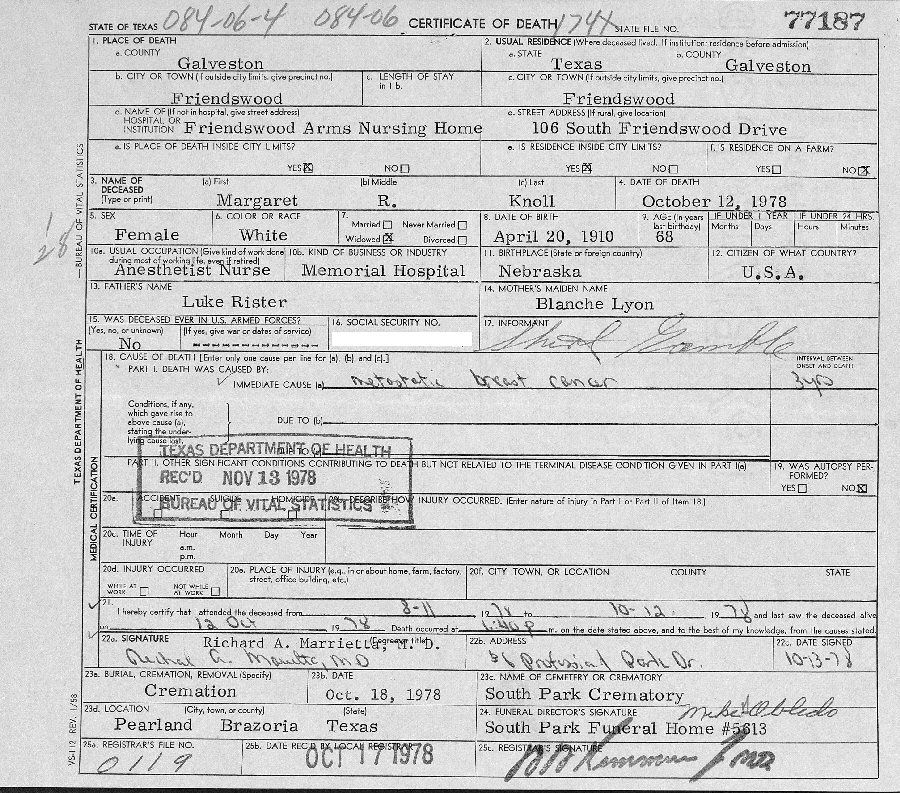 STATE OF TEXAS 084-06-4 084-06 CERTIFICATE OF DEATH 174X STATE FILE NO. 77187
1. PLACE OF DEATH
a. COUNTY
Galveston
2. USUAL RESIDENCE (Where deceased lived. If institution: residence before admission)
a. STATE b. COUNTY
Texas Galveston
b. CITY OR TOWN (If outside city limits, give precinct no.) c. LENGTH OF STAY in 1 b.
Friendswood
c. CITY OR TOWN (If outside city limits, give precinct no.)
Friendswood
d. NAME OF (If not in hospital, give street address)
HOSPITAL OR
INSTITUTION Friendswood Arms Nursing Home
d. STREET ADDRESS (If rural, give location)
106 South Friendswood Drive
e. IS PLACE OF DEATH INSIDE CITY LIMITS?
YES X NO
e. IS RESIDENCE INSIDE CITY LIMITS? f. IS RESIDENCE ON A FARM?
YES X NO YES NO X
3. NAME OF DECEASED (Type or print) (a) First (b) Middle (c) Last 4. DATE OF DEATH
Margaret R. Knoll October 12, 1978
5. SEX 6. COLOR OR RACE 7. Married Never Married Widowed X Divorced
Female White
8. DATE OF BIRTH 9. AGE (In years last birthday) IF UNDER 1 YEAR IF UNDER 24 HRS.
Months Days Hours Minutes
April 20, 1910 68
10a. USUAL OCCUPATION (Give kind of work done during most of working life, even if retired) 10b. KIND OF BUSINESS OR INDUSTRY
Anesthetist Nurse Memorial Hospital
11. BIRTHPLACE (State or foreign country) 12. CITIZEN OF WHAT COUNTRY?
Nebraska U.S.A.
13. FATHER'S NAME
Luke Rister
14. MOTHER'S MAIDEN NAME
Blanche Lyon
15. WAS DECEASED EVER IN U.S. ARMED FORCES?
(Yes, no, or unknown) (If yes, give war or dates of service)
No
16. SOCIAL SECURITY NO.
17. INFORMANT
Gamble
18. CAUSE OF DEATH [Enter only one cause per line for (a), (b), and (c).]
PART I. DEATH WAS CAUSED BY:
IMMEDIATE CAUSE (a) metastatic breast cancer
INTERVAL BETWEEN ONSET AND DEATH
3 yrs
Conditions, if any,
which gave rise to
above cause (a),
stating the under-
lying cause last.
DUE TO (b)
DUE TO (c)
PART II. OTHER SIGNIFICANT CONDITIONS CONTRIBUTING TO DEATH BUT NOT RELATED TO THE TERMINAL DISEASE CONDITION GIVEN IN PART I(a)
19. WAS AUTOPSY PERFORMED?
YES NO X
TEXAS DEPARTMENT OF HEALTH
REC'D NOV 13 1978
BUREAU OF VITAL STATISTICS
20a. ACCIDENT SUICIDE HOMICIDE 20b. DESCRIBE HOW INJURY OCCURRED. (Enter nature of injury in Part I or Part II of Item 18.)
20c. TIME OF INJURY Hour Month Day Year
a.m.
p.m.
20d. INJURY OCCURRED
WHILE AT WORK NOT WHILE AT WORK
20e. PLACE OF INJURY (e.g., in or about home, farm, factory, street, office building, etc.)
20f. CITY, TOWN, OR LOCATION COUNTY STATE
21. I hereby certify that I attended the deceased from 8-11 1978 to 10-12 1978 and last saw the deceased alive
on 12 Oct 1978 Death occurred at 1:40 p m. on the date stated above, and to the best of my knowledge, from the causes stated.
22a. SIGNATURE (Degree or title) 22b. ADDRESS 22c. DATE SIGNED
Richard A. Marrietta, M. D.
Professional Park Dr. 10-13-78
23a. BURIAL, CREMATION, REMOVAL (Specify) 23b. DATE
Cremation Oct. 18, 1978
23c. NAME OF CEMETERY OR CREMATORY
South Park Crematory
23d. LOCATION (City, town, or county) (State)
Pearland Brazoria Texas
24. FUNERAL DIRECTOR'S SIGNATURE Mike Obledo
South Park Funeral Home #5613
25a. REGISTRAR'S FILE NO. 25b. DATE REC'D BY LOCAL REGISTRAR 25c. REGISTRAR'S SIGNATURE
0119 OCT 17 1978
TEXAS DEPARTMENT OF HEALTH —BUREAU OF VITAL STATISTICS
MEDICAL CERTIFICATION
VS-112 REV. 1/58